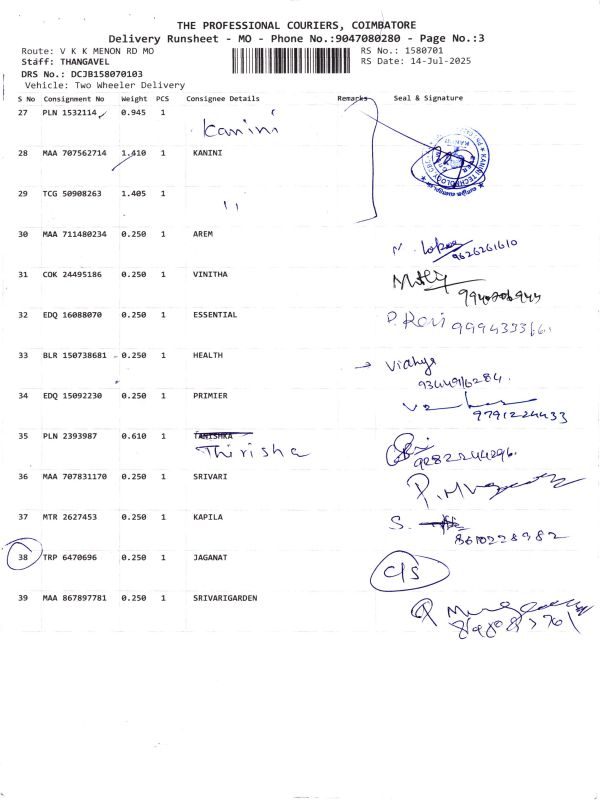 THE PROFESSIONAL COURIERS, COIMBATORE
Delivery Runsheet - MO - Phone No.:9047080280 - Page No.:3
Route: V K K MENON RD MO RS No.: 1580701
Staff: THANGAVEL RS Date: 14-Jul-2025
DRS No.: DCJB158070103
Vehicle: Two Wheeler Delivery
S No Consignment No Weight PCS Consignee Details Remarks Seal & Signature
27 PLN 1532114 0.945 1 Kanini
28 MAA 707562714 1.410 1 KANINI
29 TCG 50908263 1.405 1 "
30 MAA 711480234 0.250 1 AREM
9626261610
31 COK 24495186 0.250 1 VINITHA
32 EDQ 16088070 0.250 1 ESSENTIAL P. Ravi
33 BLR 150738681 0.250 1 HEALTH → Vidhya
34 EDQ 15092230 0.250 1 PRIMIER
9791224433
35 PLN 2393987 0.610 1 TANISHKA
Thirisha 9282244296.
36 MAA 707831170 0.250 1 SRIVARI
37 MTR 2627453 0.250 1 KAPILA S.
8610228982
38 TRP 6470696 0.250 1 JAGANAT C/S
39 MAA 867897781 0.250 1 SRIVARIGARDEN